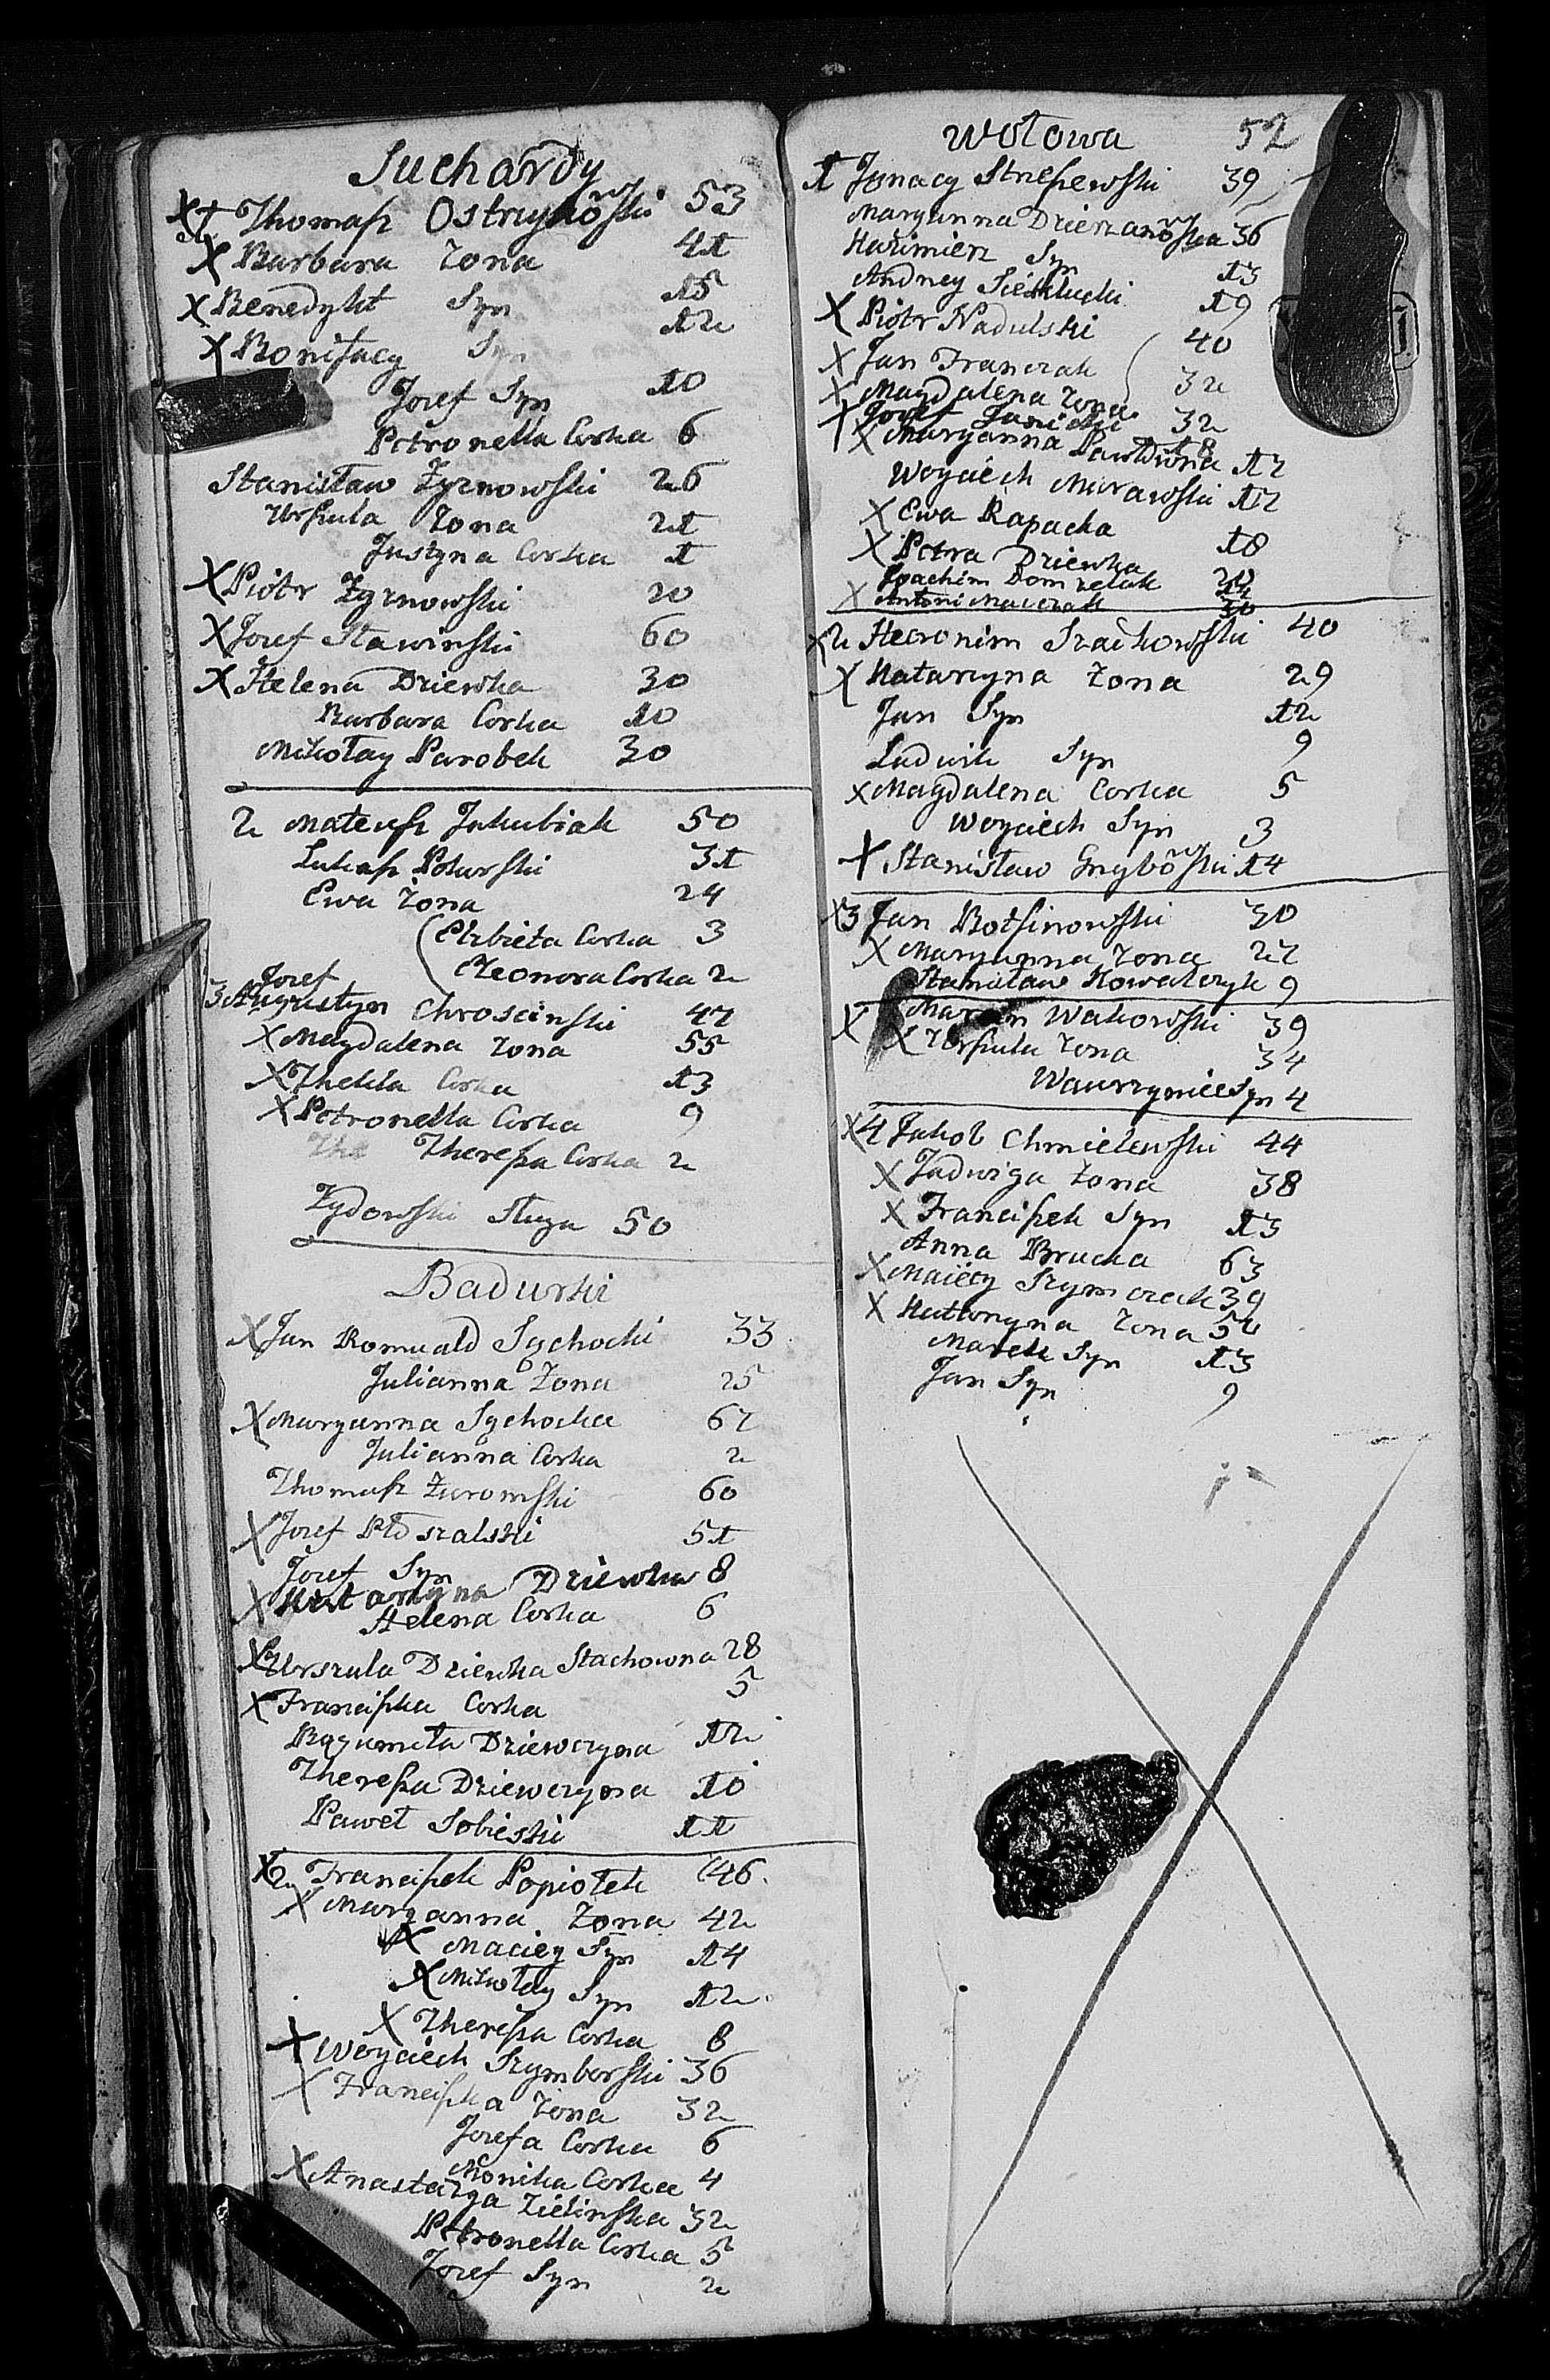 Suchardy
X 1 Thomasz Ostrzykowski 53
X Barbara Zona 41
X Benedykt Syn 15
X Bonifacy Syn 12
Jozef Syn 10
Petronella Corka 6
Stanisław Zyznowski 26
Urszula Zona 21
Justyna Corka 1
X Piotr Zyznowski 20
X Jozef Stawinski 60
X Helena Dziewka 30
Barbara Corka 10
Mikołay Parobek 30
2 Mateusz Jakubiak 50
Lukasz 31
Ewa Zona 24
Elzbieta Corka 3
Eleonora Corka 2
Jozef
3 Augustyn Chroscinski 42
X Magdalena Zona 55
X Thekla Corka 13
X Petronella Corka 9
The Theresza Corka 2
Zydowski Sługa 50
Badurki
X Jan Romuald Sychocki 33
Julianna Zona 25
X Maryanna Sychocka 62
Julianna Corka 2
Thomasz Zurowski 60
X Jozef 51
Jozef Syn
X Katarzyna Dziewka 8
Helena Corka 6
X Urszula Dziewka Stachowna 28
X Franciszka Corka 5
Bogumiła Dziewczyna 12
Theresza Dziewczyna 10
Paweł Sobieski 11
X 2 Franciszek Popiołek 46
X Maryanna Zona 42
X Maciey Syn 14
X Mikołay Syn 12
X Theresza Corka 8
X Woyciech Szymborski 36
X Franciszka Zona 32
Jozefa Corka 6
Monika Corka 4
X Anastazya Zielinska 32
Petronella Corka 5
Jozef Syn 2
Wołowa 52
1 Jgnacy 39
Maryanna Dzierzanowska 36
Kazimierz Syn 13
Andrzey 19
X Piotr Nadulski
X Jan Franczak 40
X Magdalena Zona 32
X Jozef Janicki 32
X Maryanna Pawłowna 18 12
Woyciech Murawski 12
X Ewa Rapacka
X Petra Dziewka 18
Joachim Domzelak 20
X Antoni 30
X 2 Hieronim Szaikowski 40
X Katarzyna Zona 29
Jan Syn 12
Ludwik Syn 9
X Magdalena Corka 5
Woyciech Syn 3
X Stanisław Grzybowski 14
X 3 Jan 30
X Maryanna Zona 22
Stanisław Kowalczyk 9
X Marcin Wakowski 39
X Urszula Zona 34
Wawrzyniec Syn 4
X 4 Jakob Chmielewski 44
X Jadwiga Zona 38
X Franciszek Syn 13
Anna Brucka 63
X Maciey Szymczak 39
X Katarzyna Zona 50
Marek Syn 13
Jan Syn 9